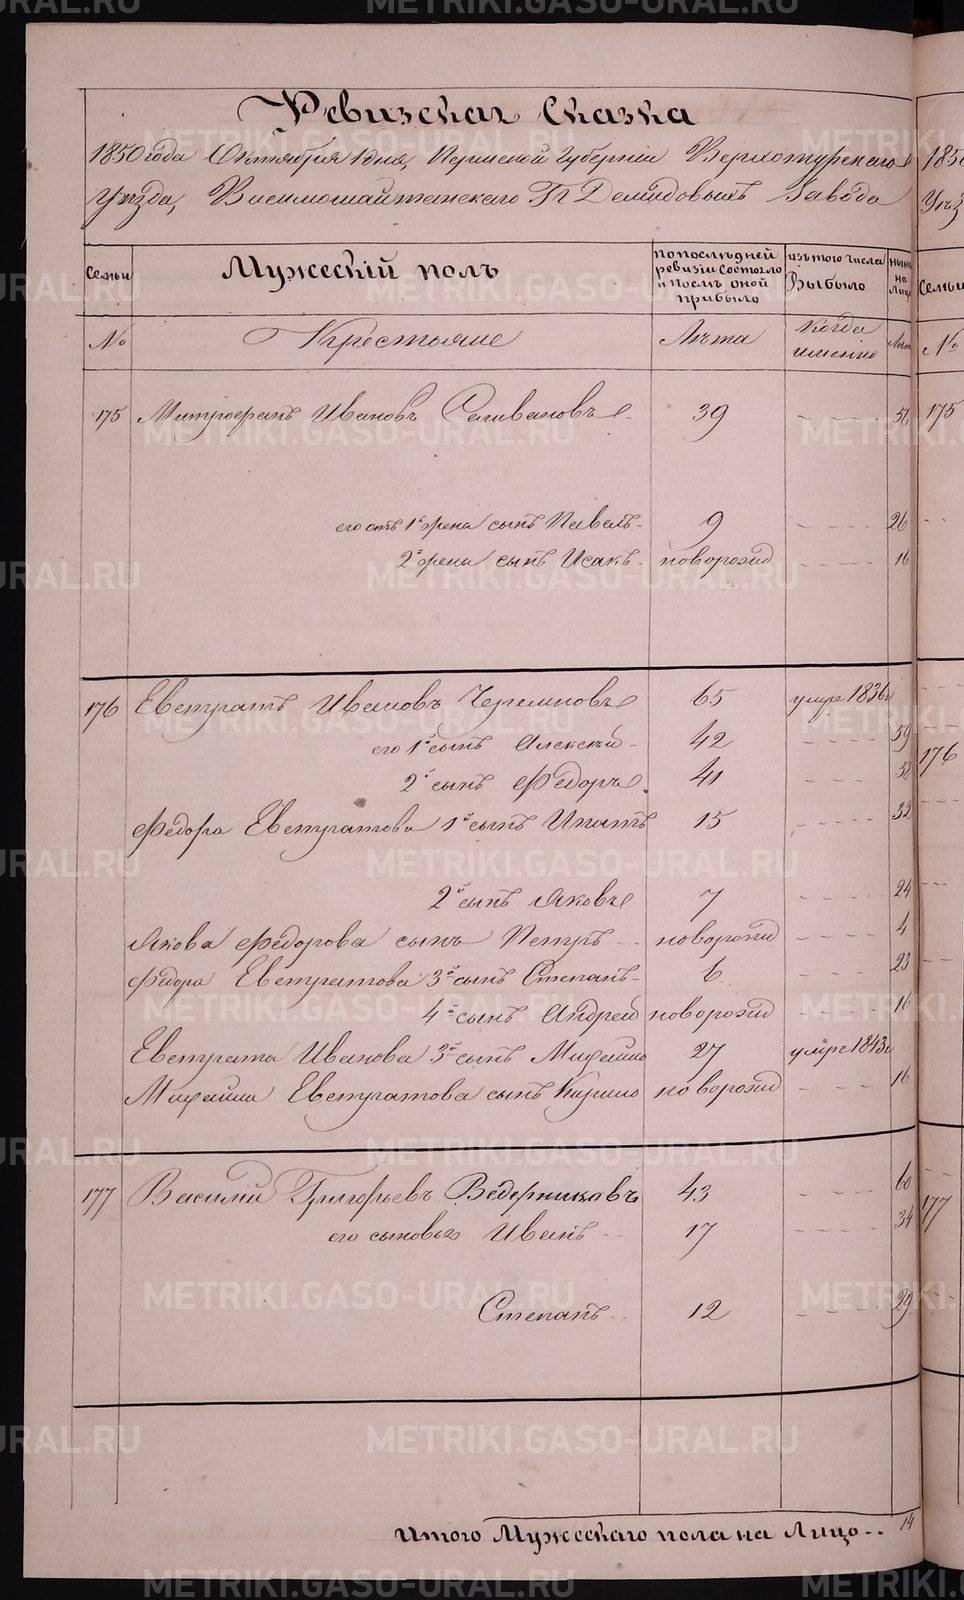 Ревизская Сказка
1850 года Октября 1 дня, Пермской Губернии Верхотурскаго
Уѣзда, Висимошайтанскаго Гг Демидовыхъ Завода
Семьи
Мужескій полъ
по последней ревизіи состояло и послѣ оной прибыло
изъ того числа Выбыло
ныне на лицо
№ Крестьяне Лѣта когда именно Лѣт
175 Митрофанъ Ивановъ Селивановъ 39 - - - - 56
его отъ 1й жены сынъ Павелъ 9 - - - - 26
2й жены сынъ Исакъ новорожд - - - - 16
176 Евстратъ Ивановъ Черемновъ 65 умре 1836
его 1й сынъ Алексѣй 42 - - - - 59
2й сынъ Федоръ 41 - - - 58
Федора Евстратова 1й сынъ Ипатъ 15 - - - - 32
2й сынъ Яковъ 7 - - - - 24
Якова Федорова сынъ Петръ новорожд - - - - 4
Федора Евстратова 3й сынъ Степанъ 6 - - - 23
4й сынъ Андрей новорожд - - - - 16
Евстрата Иванова 3й сынъ Михайло 27 умре 1843
Михайла Евстратова сынъ Кирило новорожд - - - - 16
177 Василій Григорьевъ Ведерниковъ 43 - - - 60
его сыновья Иванъ 17 - - - - 34
Степанъ 12 - - - - 29
Итого Мужескаго пола на Лицо - - 14
1850
Уѣз
Семьи
№
175
176
177
METRIKI.GASO-URAL.RU